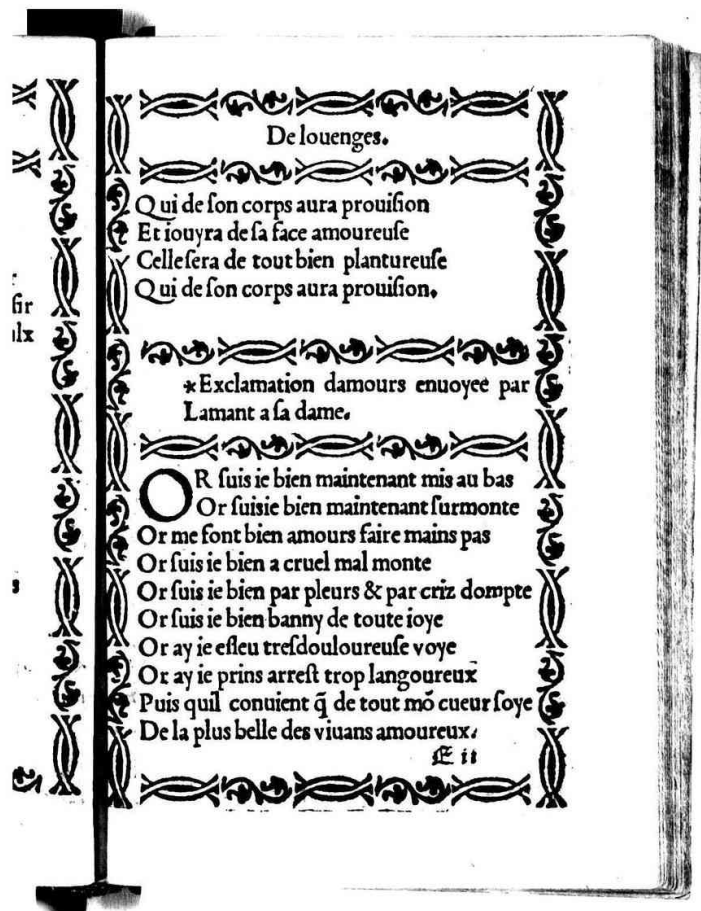 De louenges.
Qui de ſon corps aura prouiſion
Et iouyra de ſa face amoureuſe
Celle ſera de tout bien plantureuſe
Qui de ſon corps aura prouiſion.
ſir
ulx
*Exclamation damours enuoyee par
Lamant a ſa dame.
OR ſuis ie bien maintenant mis au bas
Or ſuis ie bien maintenant ſurmonte
Or me font bien amours faire mains pas
Or ſuis ie bien a cruel mal monte
Or ſuis ie bien par pleurs & par criz dompte
Or ſuis ie bien banny de toute ioye
Or ay ie eſleu treſdouloureuſe voye
Or ay ie prins arreſt trop langoureux
Puis quil conuient q̃ de tout mõ cueur ſoye
De la plus belle des viuans amoureux.
E ii